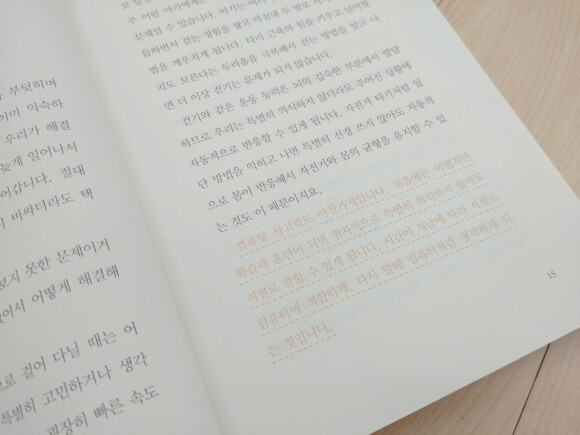 부딪히며
이미 익숙하
우리가 해결
늦게 일어나서
어갑니다. 절대
비싸더라도 택
보지 못한 문제이거
어서 어떻게 해결해
으로 걸어 다닐 때는 어
특별히 고민하거나 생각
굉장히 빠른 속도
주 어린 아기에게는
문제일 수 있습니다. 아기는
듭하면서 걷는 경험을 쌓고 마침내 두 발로
법을 깨우치게 됩니다. 다리 근육의 힘을 키우고 넘어질
지도 모른다는 두려움을 극복해서 걷는 방법을 알고 나
면 더 이상 걷기는 문제가 되지 않습니다.
걷기와 같은 운동 능력은 뇌의 깊숙한 부분에서 발달
하므로 우리는 특별히 의식하지 않더라도 주어진 상황에
자동적으로 반응할 수 있게 됩니다. 자전거 타기처럼 일
단 방법을 익히고 나면 특별히 신경 쓰지 않아도 자동적
으로 몸이 반응해서 자전거와 몸의 균형을 유지할 수 있
는 것도 이 때문이지요.
컴퓨팅 사고력도 마찬가지입니다. 처음에는 어렵지만
학습과 훈련이 되면 점차적으로 특별히 의식하지 않아도
저절로 잘할 수 있게 됩니다. 시간이 지남에 따라 저절로
컴퓨터에 적합하게, 다시 말해 컴퓨터처럼 생각하게 되
는 것입니다.
15